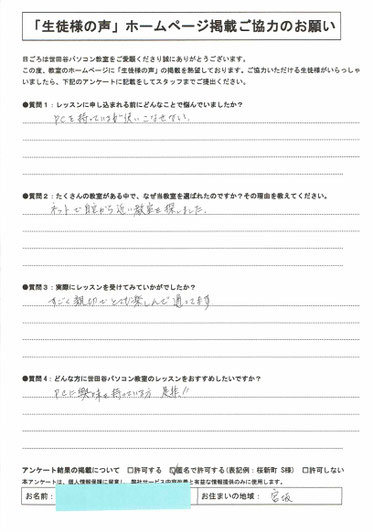 「生徒様の声」ホームページ掲載ご協力のお願い
日ごろは世田谷パソコン教室をご愛顧くださり誠にありがとうございます。
この度、教室のホームページに「生徒様の声」の掲載を熱望しております。ご協力いただける生徒様がいらっしゃ
いましたら、下記のアンケートに記載をしてスタッフまでご提出ください。
●質問1：レッスンに申し込まれる前にどんなことで悩んでいましたか？
PCを持っているが使いこなせない。
●質問2：たくさんの教室がある中で、なぜ当教室を選ばれたのですか？その理由を教えてください。
ネットで自宅から近い教室を探しました。
●質問3：実際にレッスンを受けてみていかがでしたか？
すごく親切でとても楽しんで通ってます
●質問4：どんな方に世田谷パソコン教室のレッスンをおすすめしたいですか？
PCに興味を持っている方 是非!!
アンケート結果の掲載について □許可する ☑匿名で許可する(表記例：桜新町 S様) □許可しない
本アンケートは、個人情報保護に留意し、弊社サービス内容改善と有益な情報提供のみに使用します。
お名前： お住まいの地域： 宮坂